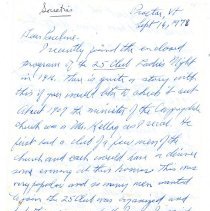 Proctor, Vt
Sept 16, 1978
I recently found the enclosed
program of the 25 Club Ladies Night
in 1916. This is quite a story with
this if you would like to check it out
About 1909 the minister of the Congregational
church was a Mr. Kelley as I recall. He
just had a club of a few men of the
church and each would have a dinner
and evening at his home. This was
very popular and so many men wanted
to join the 25 Club was organized and